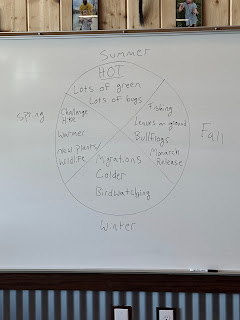 Summer
HOT
Lots of green
Lots of bugs
Spring
Challenge
Hike
Warmer
new plants/
wildlife
Fishing
Leaves on ground
Bullfrogs
Monarch
Release
Fall
Migrations
Colder
Birdwatching
Winter